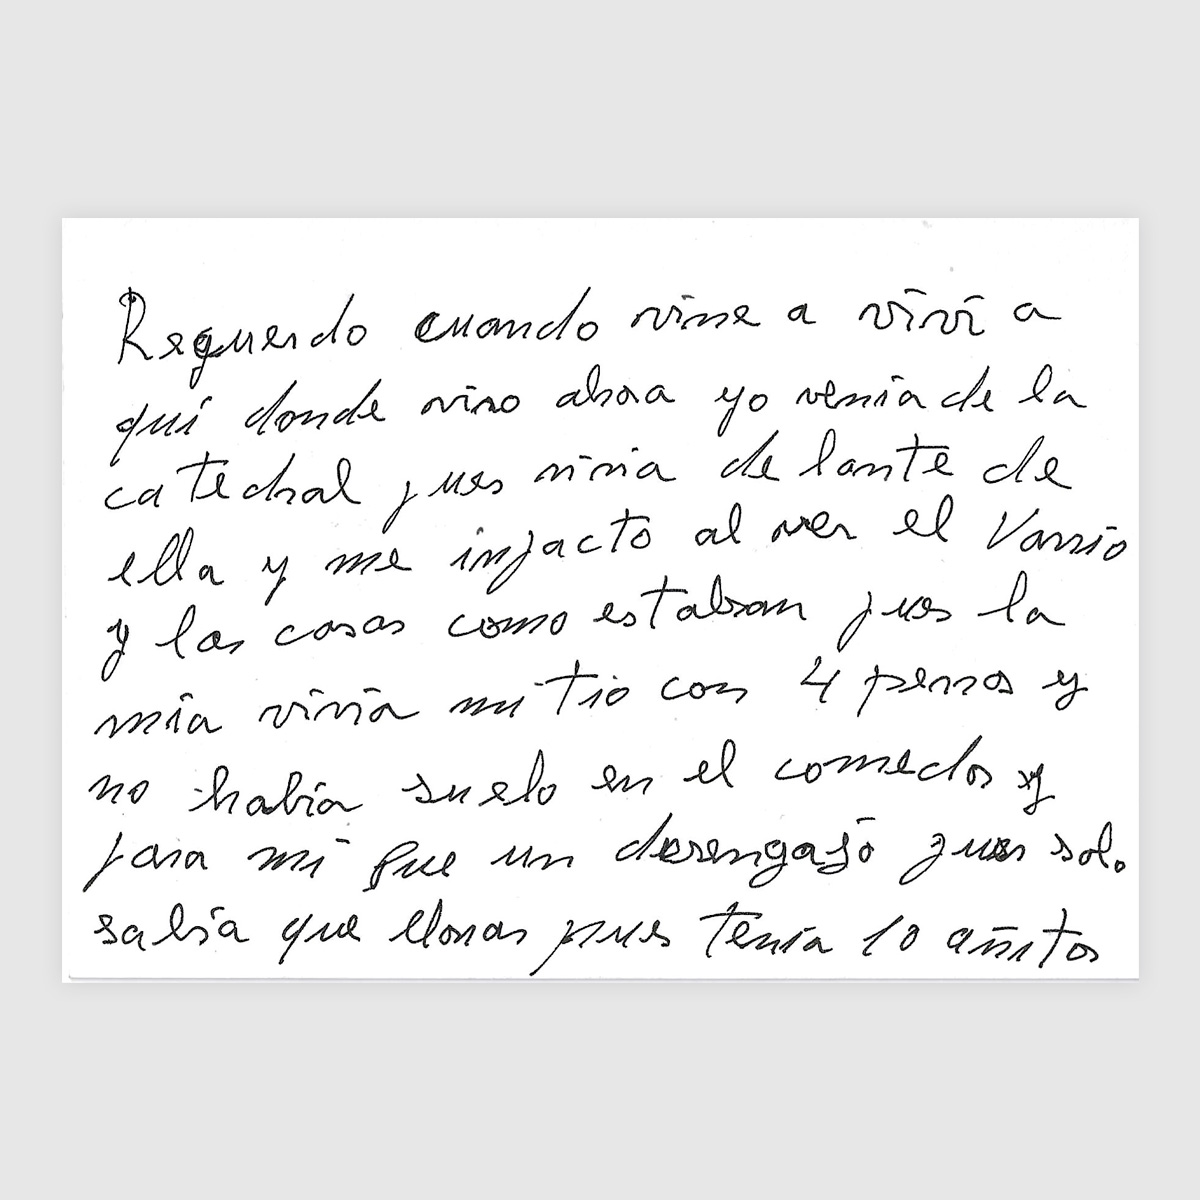 Requerdo cuando vine a viví a
quí donde vivo ahora yo venia de la
catedral pues vivia de lante de
ella y me injacto al ver el Varrio
y las casas como estaban pues la
mía vivía mi tio con 4 perros y
no había suelo en el comedor y
para mí fue un desengajó pues solo
sabía que lloras pues tenía 10 añitos